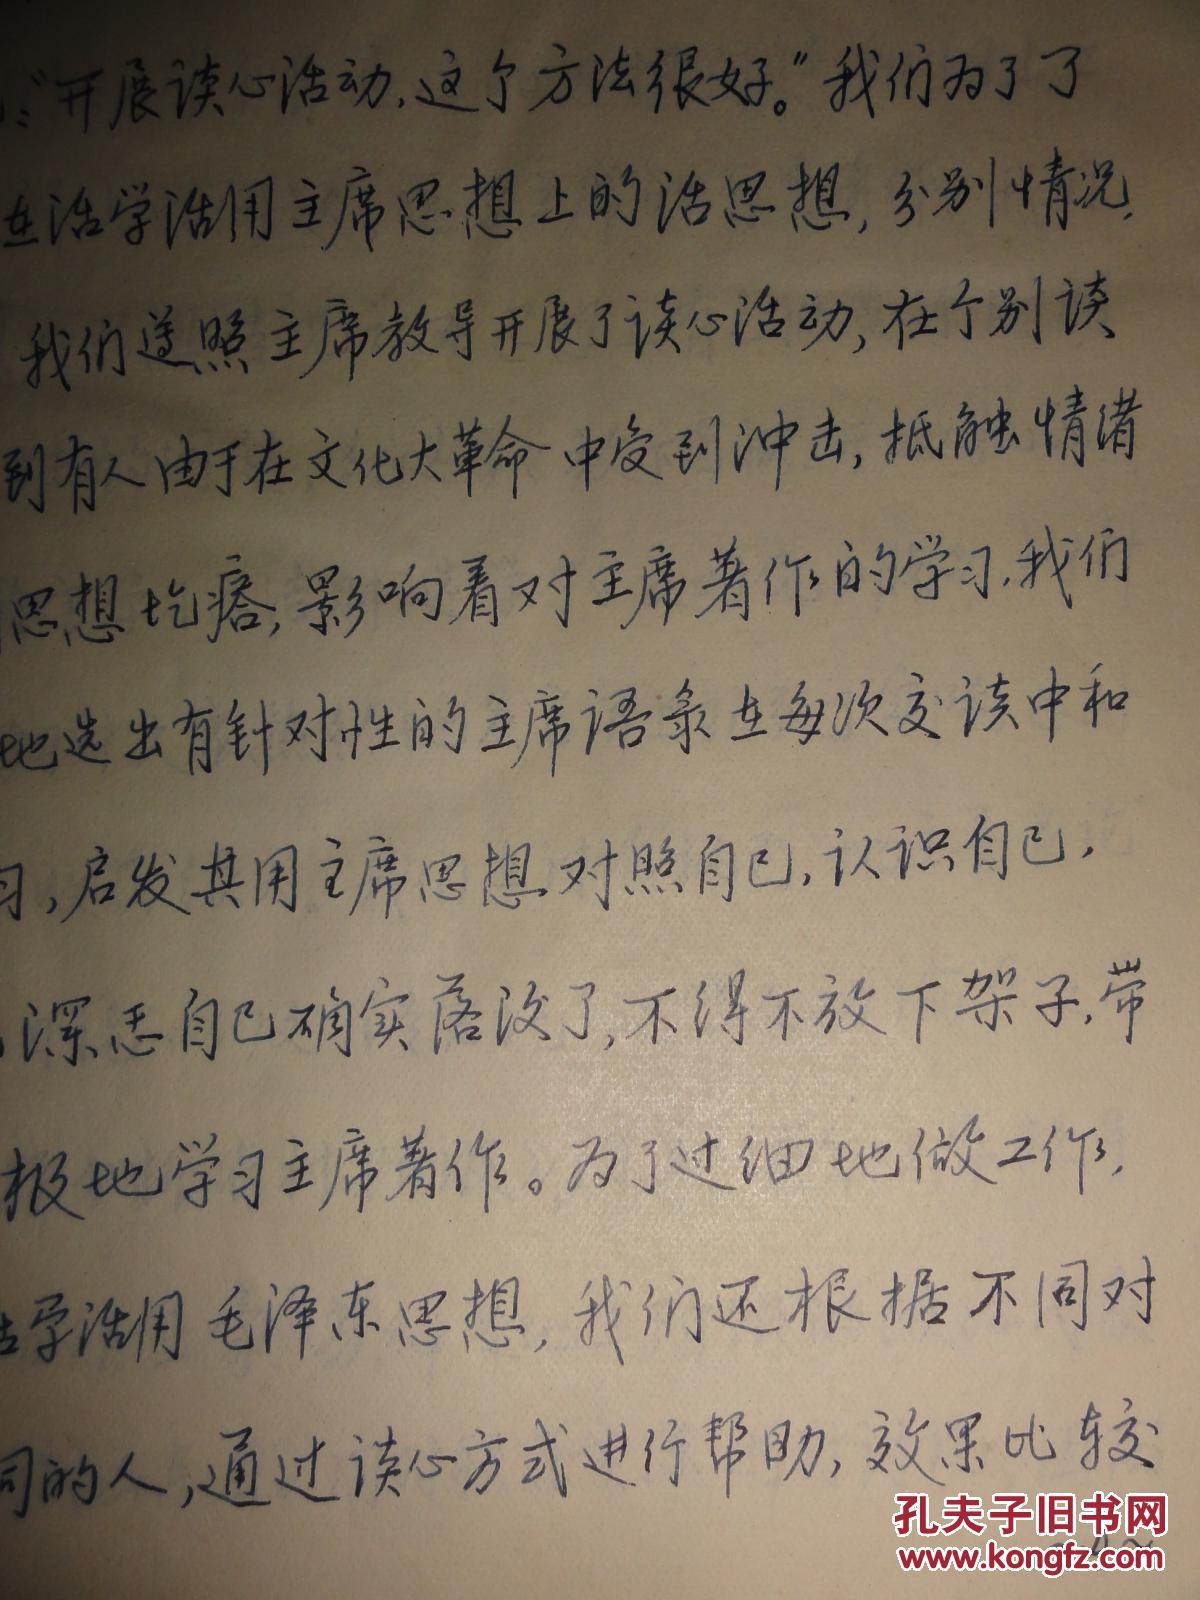 :"开展谈心活动，这个方法很好。"我们为了了
在活学活用主席思想上的活思想，分别情况，
我们遵照主席教导开展了谈心活动，在个别谈
到有人由于在文化大革命中受到冲击，抵触情绪
思想圪瘩，影响着对主席著作的学习，我们
地选出有针对性的主席语录在每次交谈中和
习，启发其用主席思想对照自己，认识自己，
深悉自己确实落没了，不得不放下架子，带
极地学习主席著作。为了过细地做工作，
活学活用毛泽东思想，我们还根据不同对
同的人，通过谈心方式进行帮助，效果比较
孔夫子旧书网
www.kongfz.com